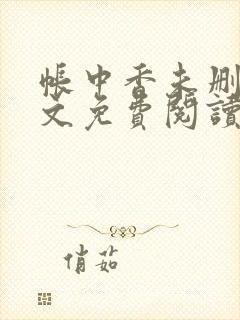 帳中香未删
文免費閱讀
俏茹